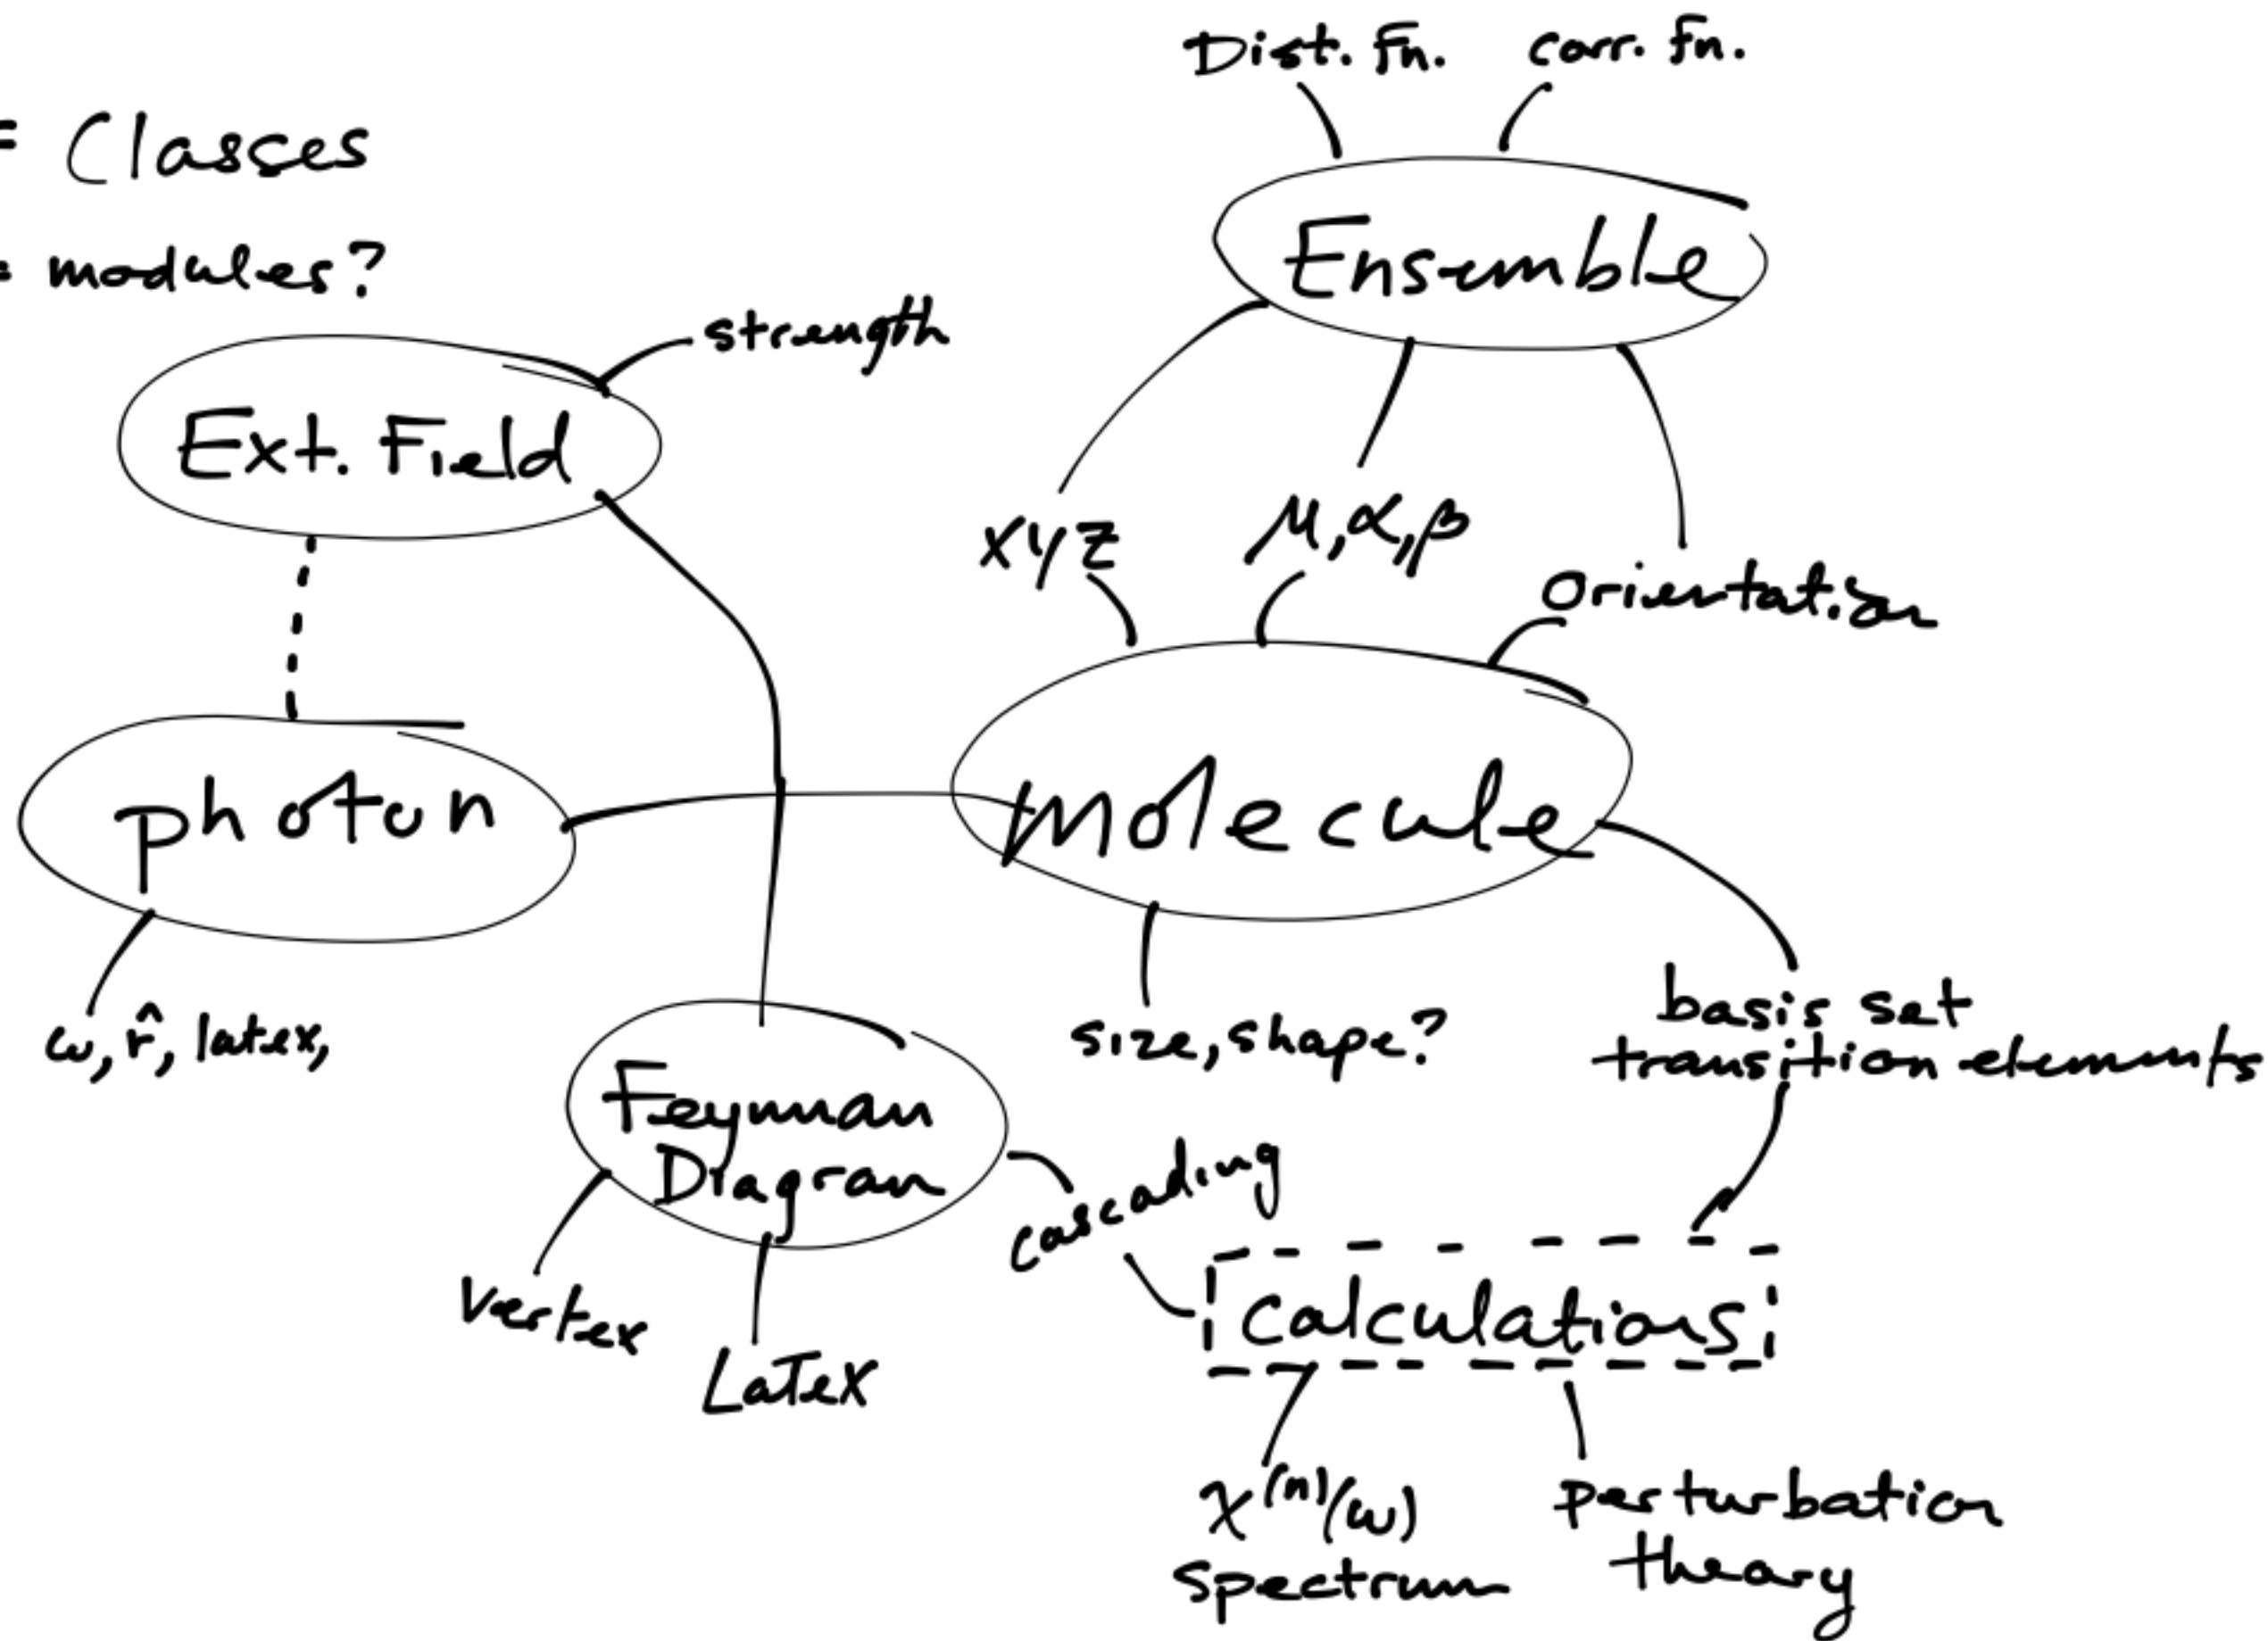 = Classes
= modules?
Dist. Fn. corr. fn.
Ensemble
strength
Ext. Field
xyz
μ,α,β
orientation
photon
molecule
ω, r̂, latex,
size, shape?
basis set
transition elements
Feynman
Diagram
cascading
vertex
LaTeX
calculations
χ⁽ⁿ⁾(ω)
spectrum
perturbation
theory